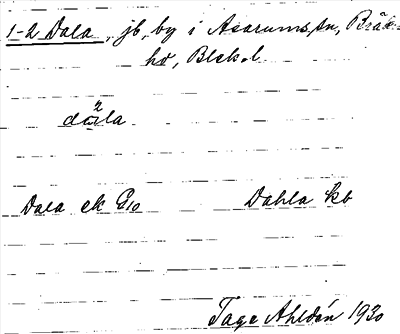 1-2 Dala, jb, by i Asarums sn, Bräk-
ne hd, Blek. l.
2
dala
Dala ek G10 Dahla kb
Tage Ahldén 1930